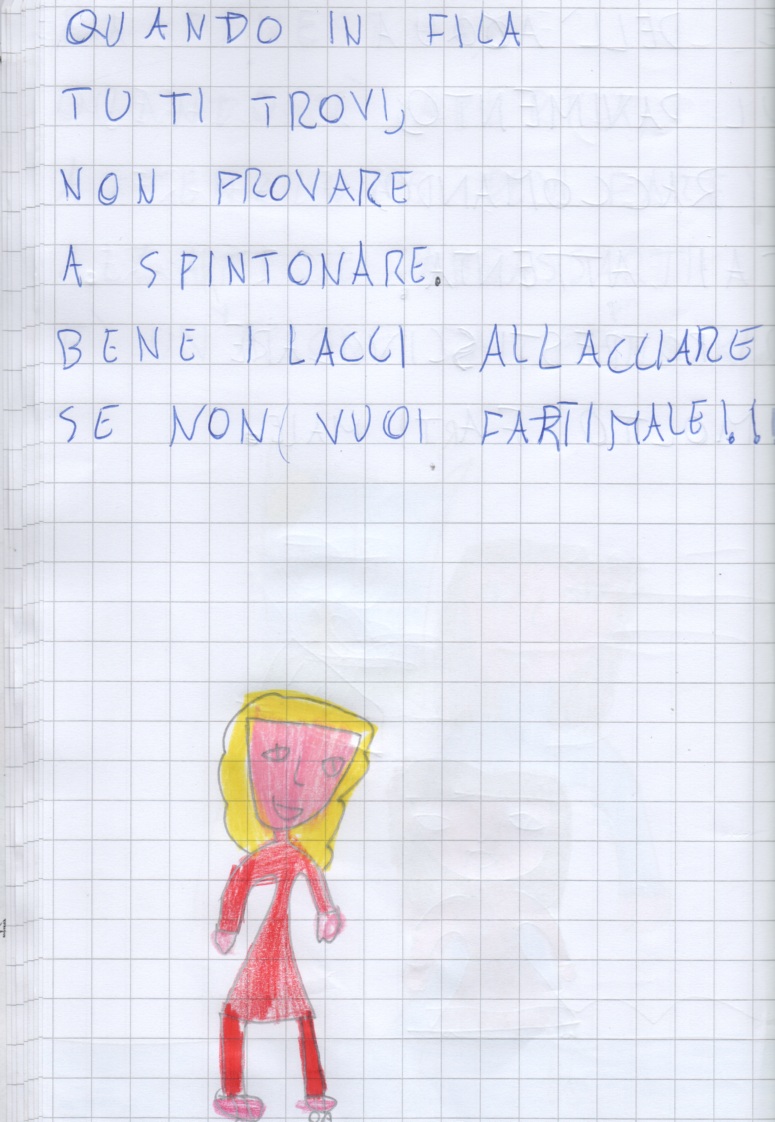 QUANDO IN FILA
TU TI TROVI,
NON PROVARE
A SPINTONARE.
BENE I LACCI ALLACCIARE
SE NON VUOI FARTI MALE!!!